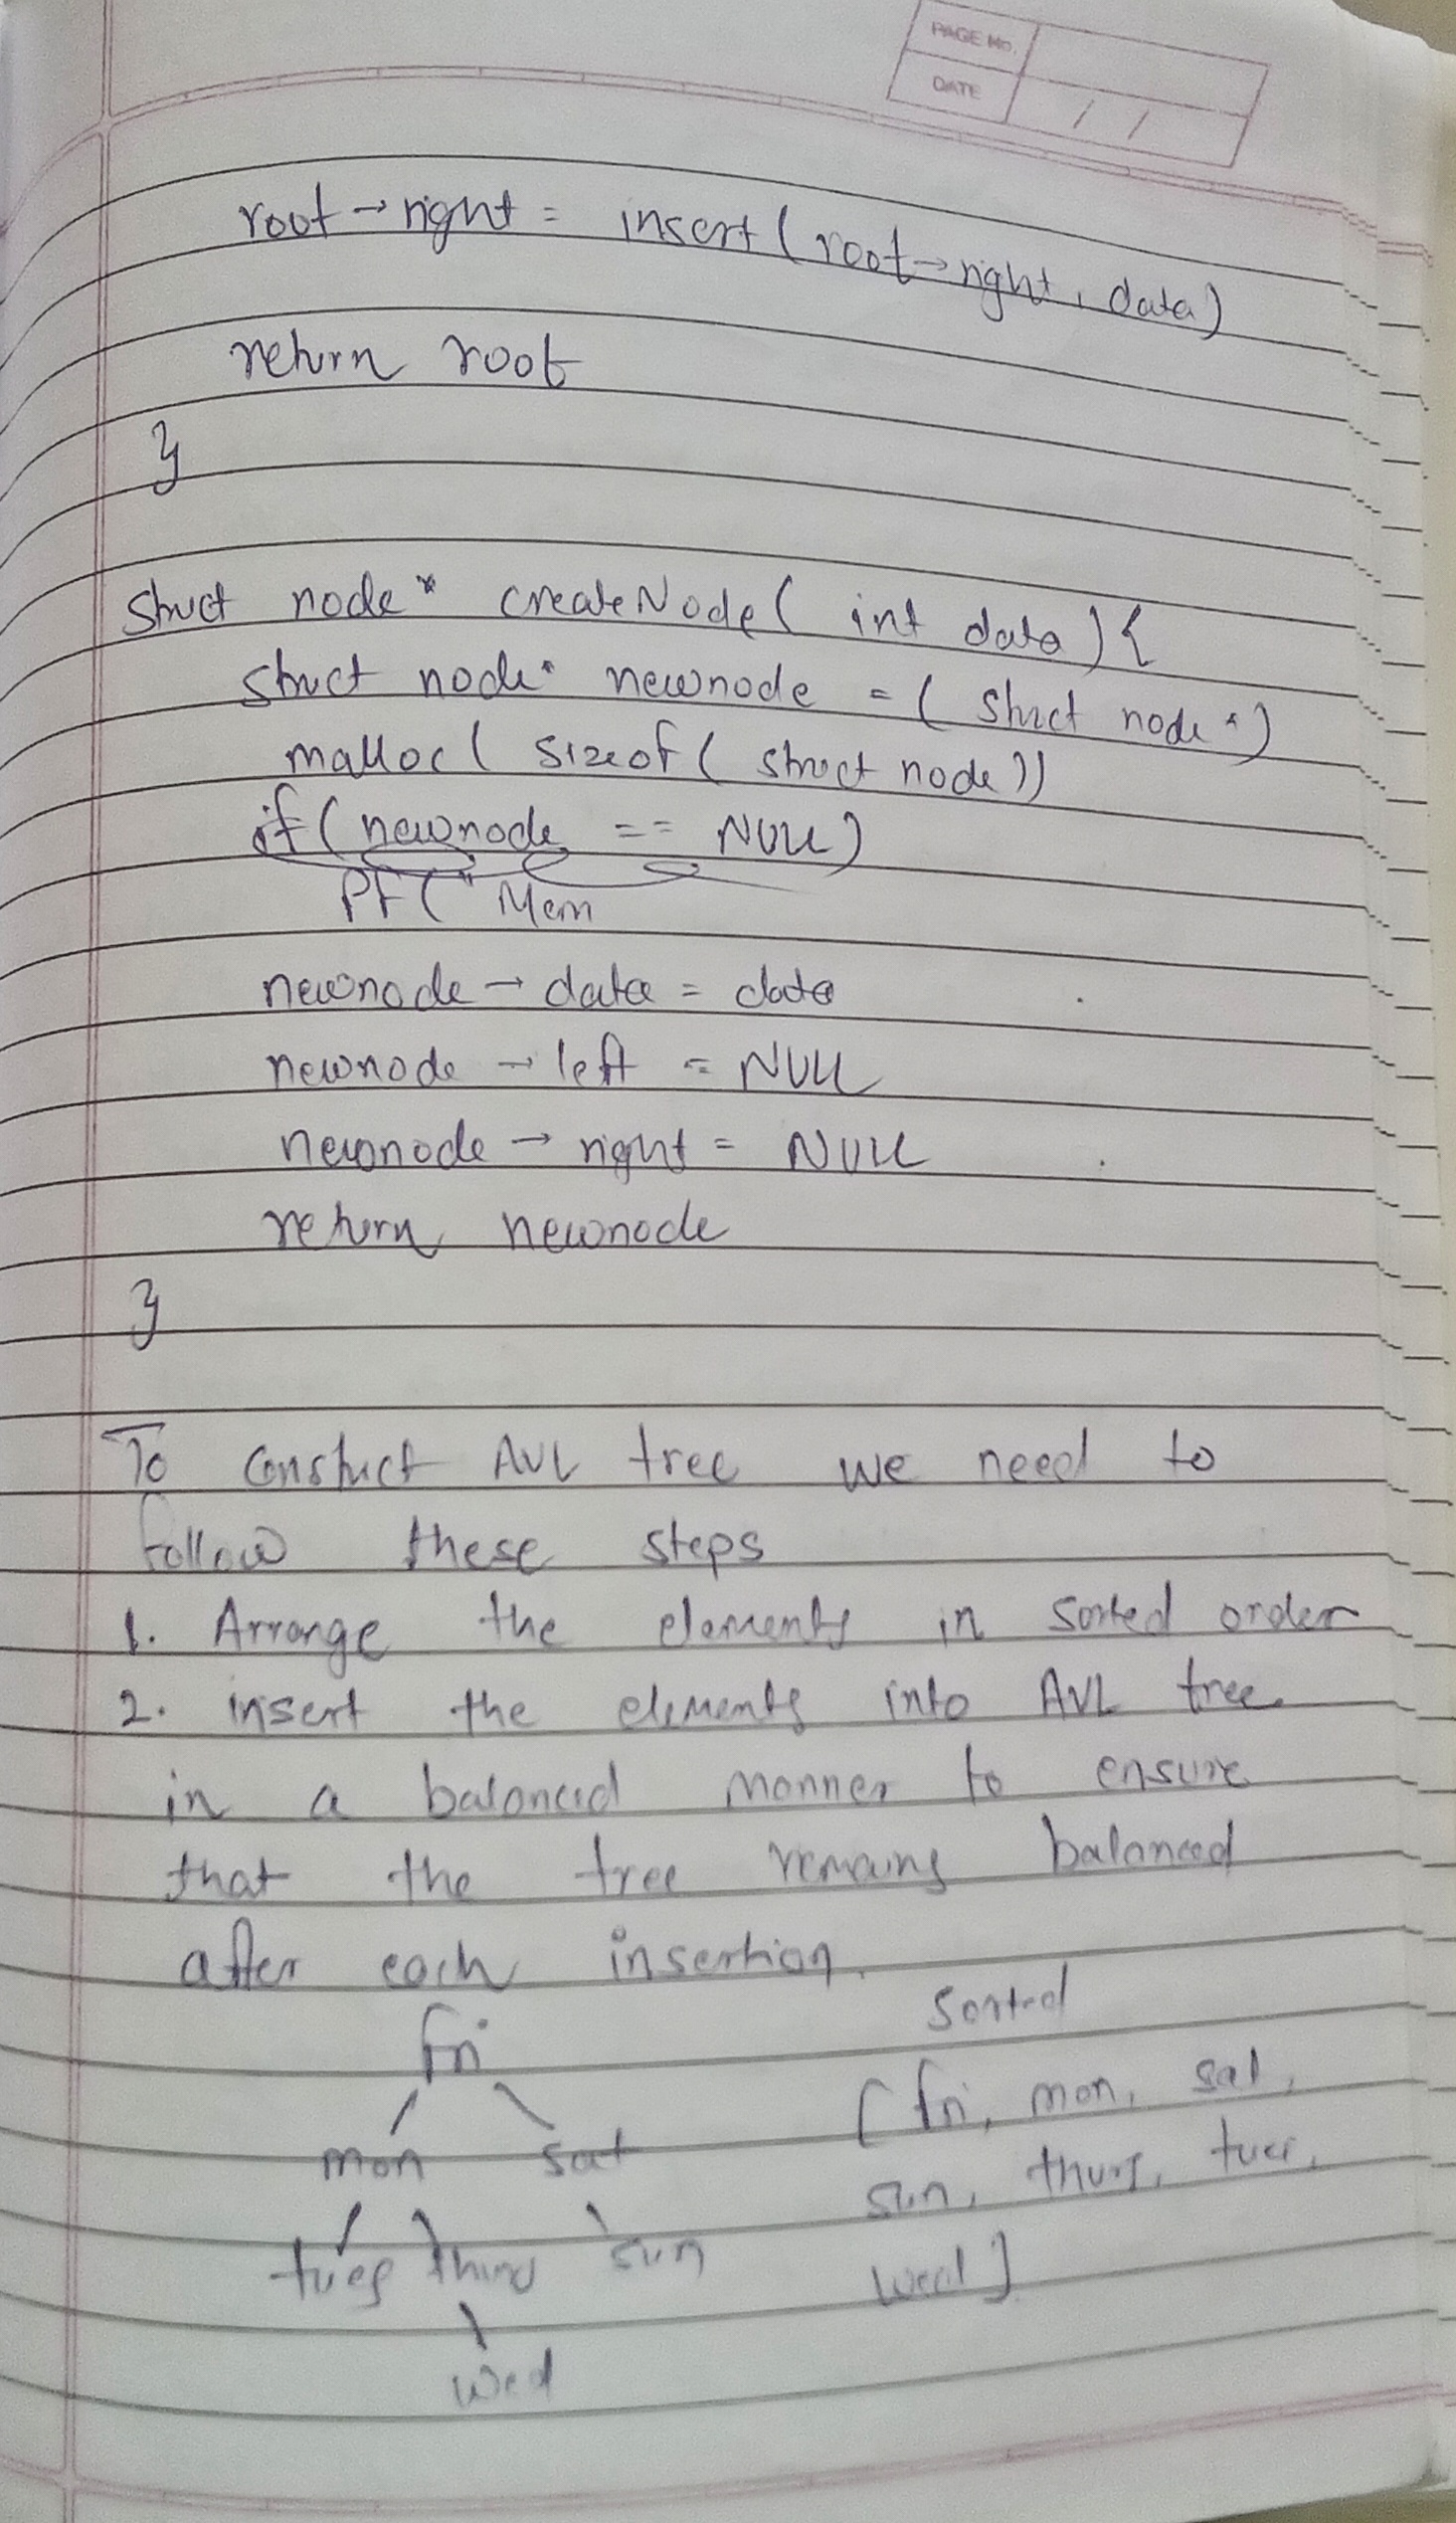 PAGE No.
DATE / /
root → right = insert ( root → right, data )
return root
}
struct node* createNode ( int data ) {
struct node* newnode = ( struct node * )
malloc ( sizeof ( struct node ))
if ( newnode == NULL )
PF ( " Mem
newnode → data = data
newnode → left = NULL
newnode → right = NULL
return newnode
}
To construct AVL tree we need to
follow these steps
1. Arrange the elements in sorted order
2. insert the elements into AVL tree
in a balanced manner to ensure
that the tree remains balanced
after each insertion.
sorted
fri
[ fri, mon, sat,
mon sat
sun, thurs, tues,
tues thurs sun
wed ]
wed